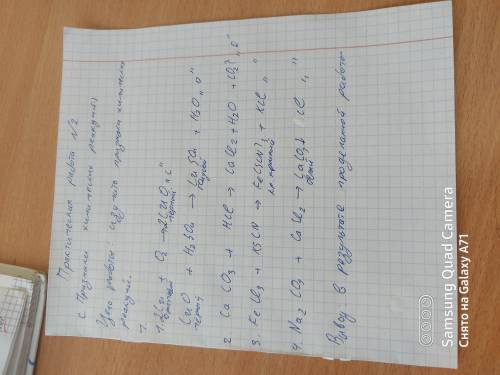 Практическая работа N2
с. Признаки химических реакций)
Цель работы: изучить признаки химических
реакций.
1.
1. 2Cu + O2 → 2CuO "с"
красный чёрный
CuO + H2SO4 → CuSO4 + H2O "о"
чёрный голубой
2 CaCO3 + HCl → CaCl2 + H2O + CO2↑ "о"
3. FeCl3 + KSCN → Fe(SCN)3 + KCl " "
кр. красный
4. Na2CO3 + CaCl2 → CaCO3↓ Cl " "
белый
Вывод: В результате проделанной работы
Samsung Quad Camera
Снято на Galaxy A71